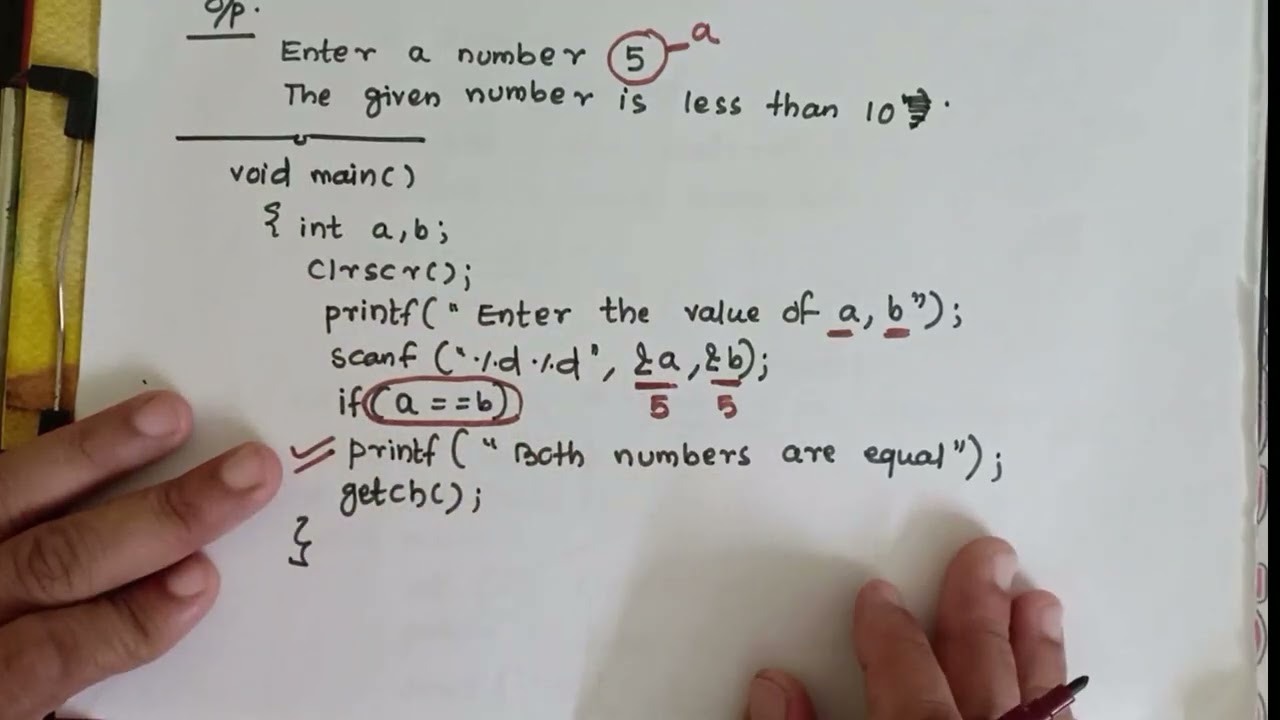 O/p.
Enter a number 5 - a
The given number is less than 10.
void main()
{ int a,b;
clrscr();
printf(" Enter the value of a, b");
scanf ("%d %d", &a, &b);
5 5
if (a == b)
printf (" Both numbers are equal");
getch();
}